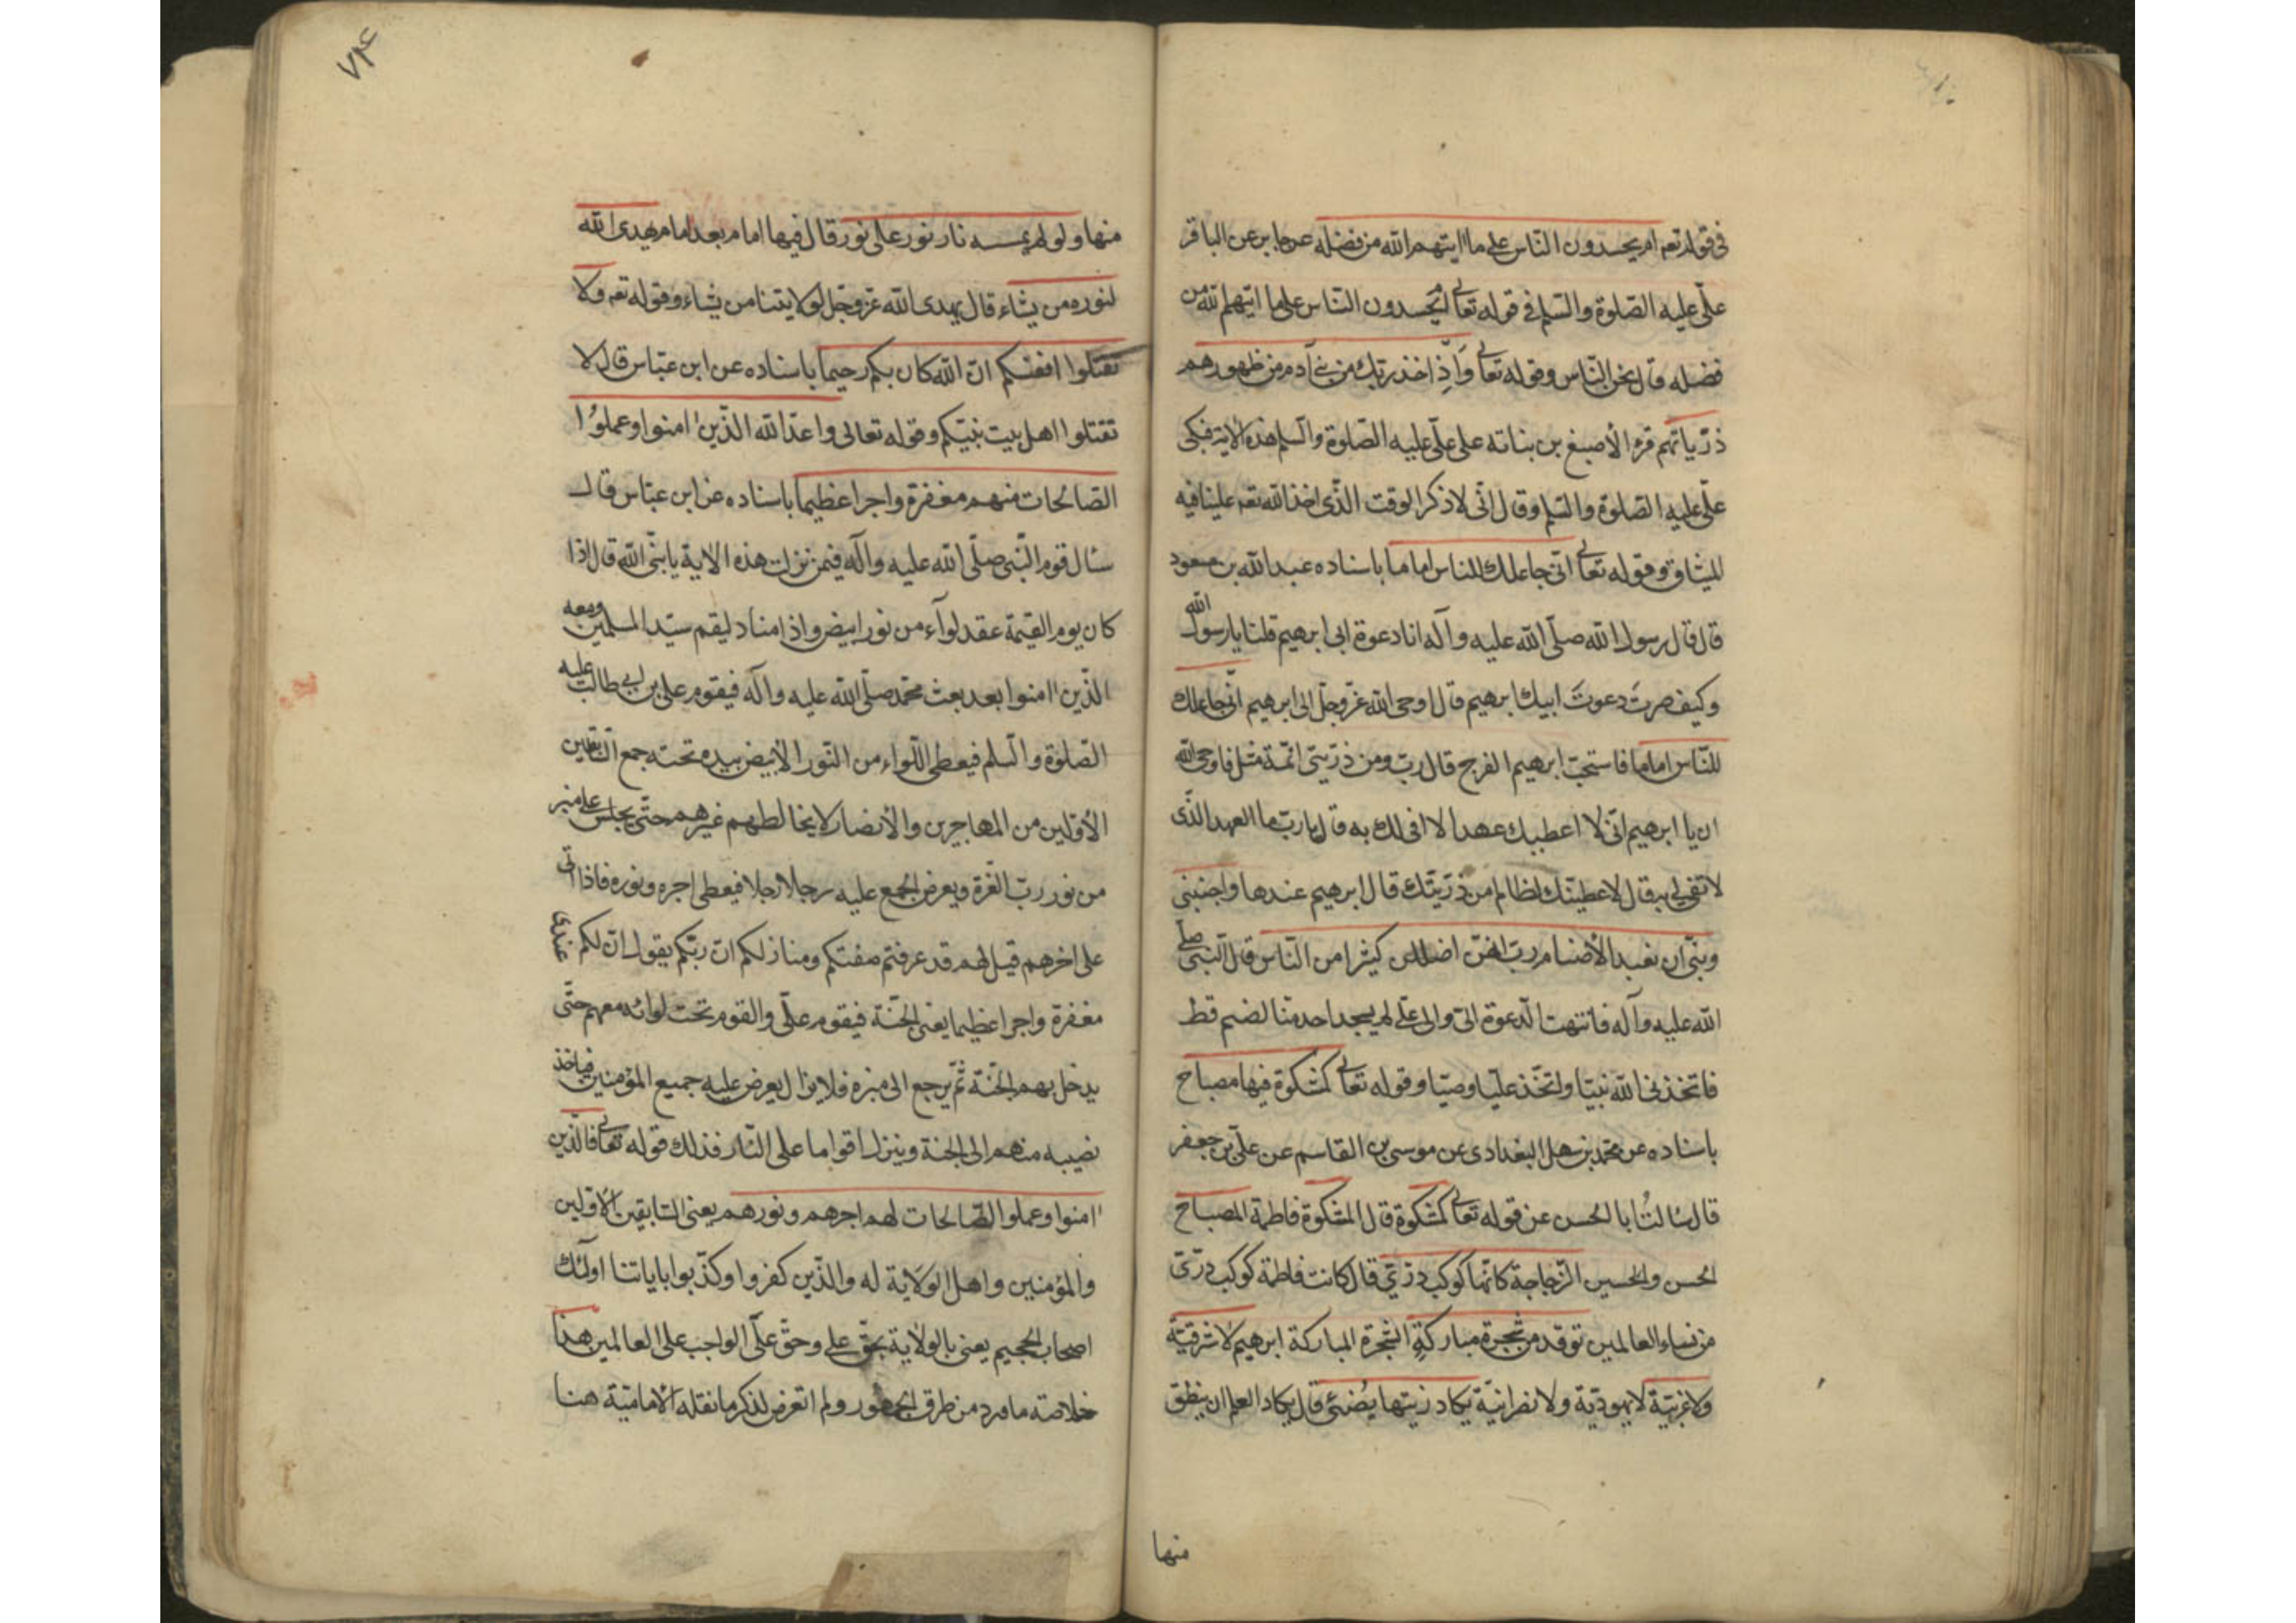 فى قوله تعه ام يحسدون الناس على ما اتيهم الله من فضله عن جابر عن الباقر
علّى عليه الصّلوة والسّلم فى قوله تعالى ام يحسدون النّاس على ما اتيهم الله من
فضله قال نحن النّاس وقوله تعالى وَاِذ اخذ ربّك من بنى آدم من ظهورهم
ذرّياتهم قرء الأصبغ بن بناته على علّى عليه الصّلوة والسّلم هذه الاية فبكى
علّى عليه الصّلوة والسّلم وقال انّى لاذكر الوقت الّذى اخذ الله تعه علينا فيه
الميثاق وقوله تعالى انّى جاعلك للناس اماما باسناده عبد الله بن مسعود
قال قال رسول الله صلّى الله عليه وآله انا دعوة ابى ابرهيم قلنا يا رسول الله
وكيف صرت دعوتَ ابيك ابرهيم قال اوحى الله عزّ وجلّ الى ابرهيم انّى جاعلك
للنّاس اماما فاستحبّ ابرهيم الفرح قال ربّ ومن ذرّيتى ائمّة مثل فاوحى الله
ان يا ابرهيم انّى لا اعطيك عهدا لا افى لك به قال يا ربّ ما العهد الّذى
لا تفى لى به قال لا عطيتك لظالم من ذرّيّتك قال ابرهيم عندها واجنبنى
وبنىّ ان نعبد الأصنام ربّ انهنّ اضللن كثيرا من النّاس قال النّبى صلّى
الله عليه وآله فانتهت الدّعوة الىّ والى علّى لم يسجد احد منّا لصنم قط
فاتخذنى الله نبيّا واتخّذ عليّا وصيّا وقوله تعالى كمشكوة فيها مصباح
باسناده عن محمّد بن سهل البغدادى عن موسى بن القاسم عن علّى بن جعفر
قال سُالتُ ابا الحسن عن قوله تعالى كمشكوة قال المشكوة فاطمة المصباح
الحسن والحسين الزّجاجة كانّها كوكب درّىّ قال كانت فاطمة كوكب درّىّ
من نساء العالمين توقد من شجرة مباركةٍ الشّجرة المباركة ابرهيم لا شرقيّة
ولا غربيّة لا يهوديّة ولا نصرانيّة يكاد زيتها يُضئ قال يكاد العلم ان ينطق
منها
٧٣۴
منها ولو لم يمسسه نار نور على نور قال فيها امام بعد امام يهدى الله
لنوره من يشاء قال يهدى الله عزّ وجّل لولايتنا من يشاء وقوله تعه ولا
تقتلوا انفسكم انّ الله كان بكم رحيما باسناده عن ابن عبّاس قال لا
تقتلوا اهل بيت نبيّكم وقوله تعالى وعد الله الّذين امنوا وعملوُا
الصّالحات منهم مغفرة واجرا عظيما باسناده عن ابن عبّاس قال
سُال قوم النّبى صلّى الله عليه وآله فيمن نزلت هذه الاية يا نبىّ الله قال اذا
كان يوم القيمة عقد لوآء من نور ابيض واذا مناد ليقم سيّد المسلمين ومعه
الّذين امنوا بعد بعث محمّد صلّى الله عليه وآله فيقوم على بن ابى طالب عليه
الصّلوة والسّلم فيعطى اللّواء من النّور الأبيض بيده تحته جمع السّابقين
الأوّلين من المهاجرين والأنصار لا يخالطهم غيرهم حتّى يجلس على منبر
من نور ربّ العّزة ويعرض الجمع عليه رجلا رجلا فيعطى اجره ونوره فاذا اتى
على اخرهم قيل لهم قد عرفتم صفتكم ومنازلكم انّ ربّكم يقول انّ لكم عندى
مغفرة واجرا عظيما يعنى الجنّة فيقوم علّى والقوم تحت لوائه معهم حتّى
يدخل بهم الجنّة ثمّ يرجع الى منبره فلا يزال يعرض عليه جميع المؤمنين فياخذ
نصيبه منهم الى الجنة وينزل اقواما على النّار فذلك قوله تعالى فالّذين
امنوا وعملوا الصّالحات لهم اجرهم ونورهم يعنى السّابقين الأوّلين
والمؤمنين واهل الولاية له والّذين كفروا وكذّبوا باياتنا اولئك
اصحاب الجحيم يعنى بالولاية بحقّ على وحقّ علّى الواجب على العالمين هذا
خلاصة ما ورد من طرق الجمهور ولم اتعرض لذكر ما نقله الأماميّة هنا